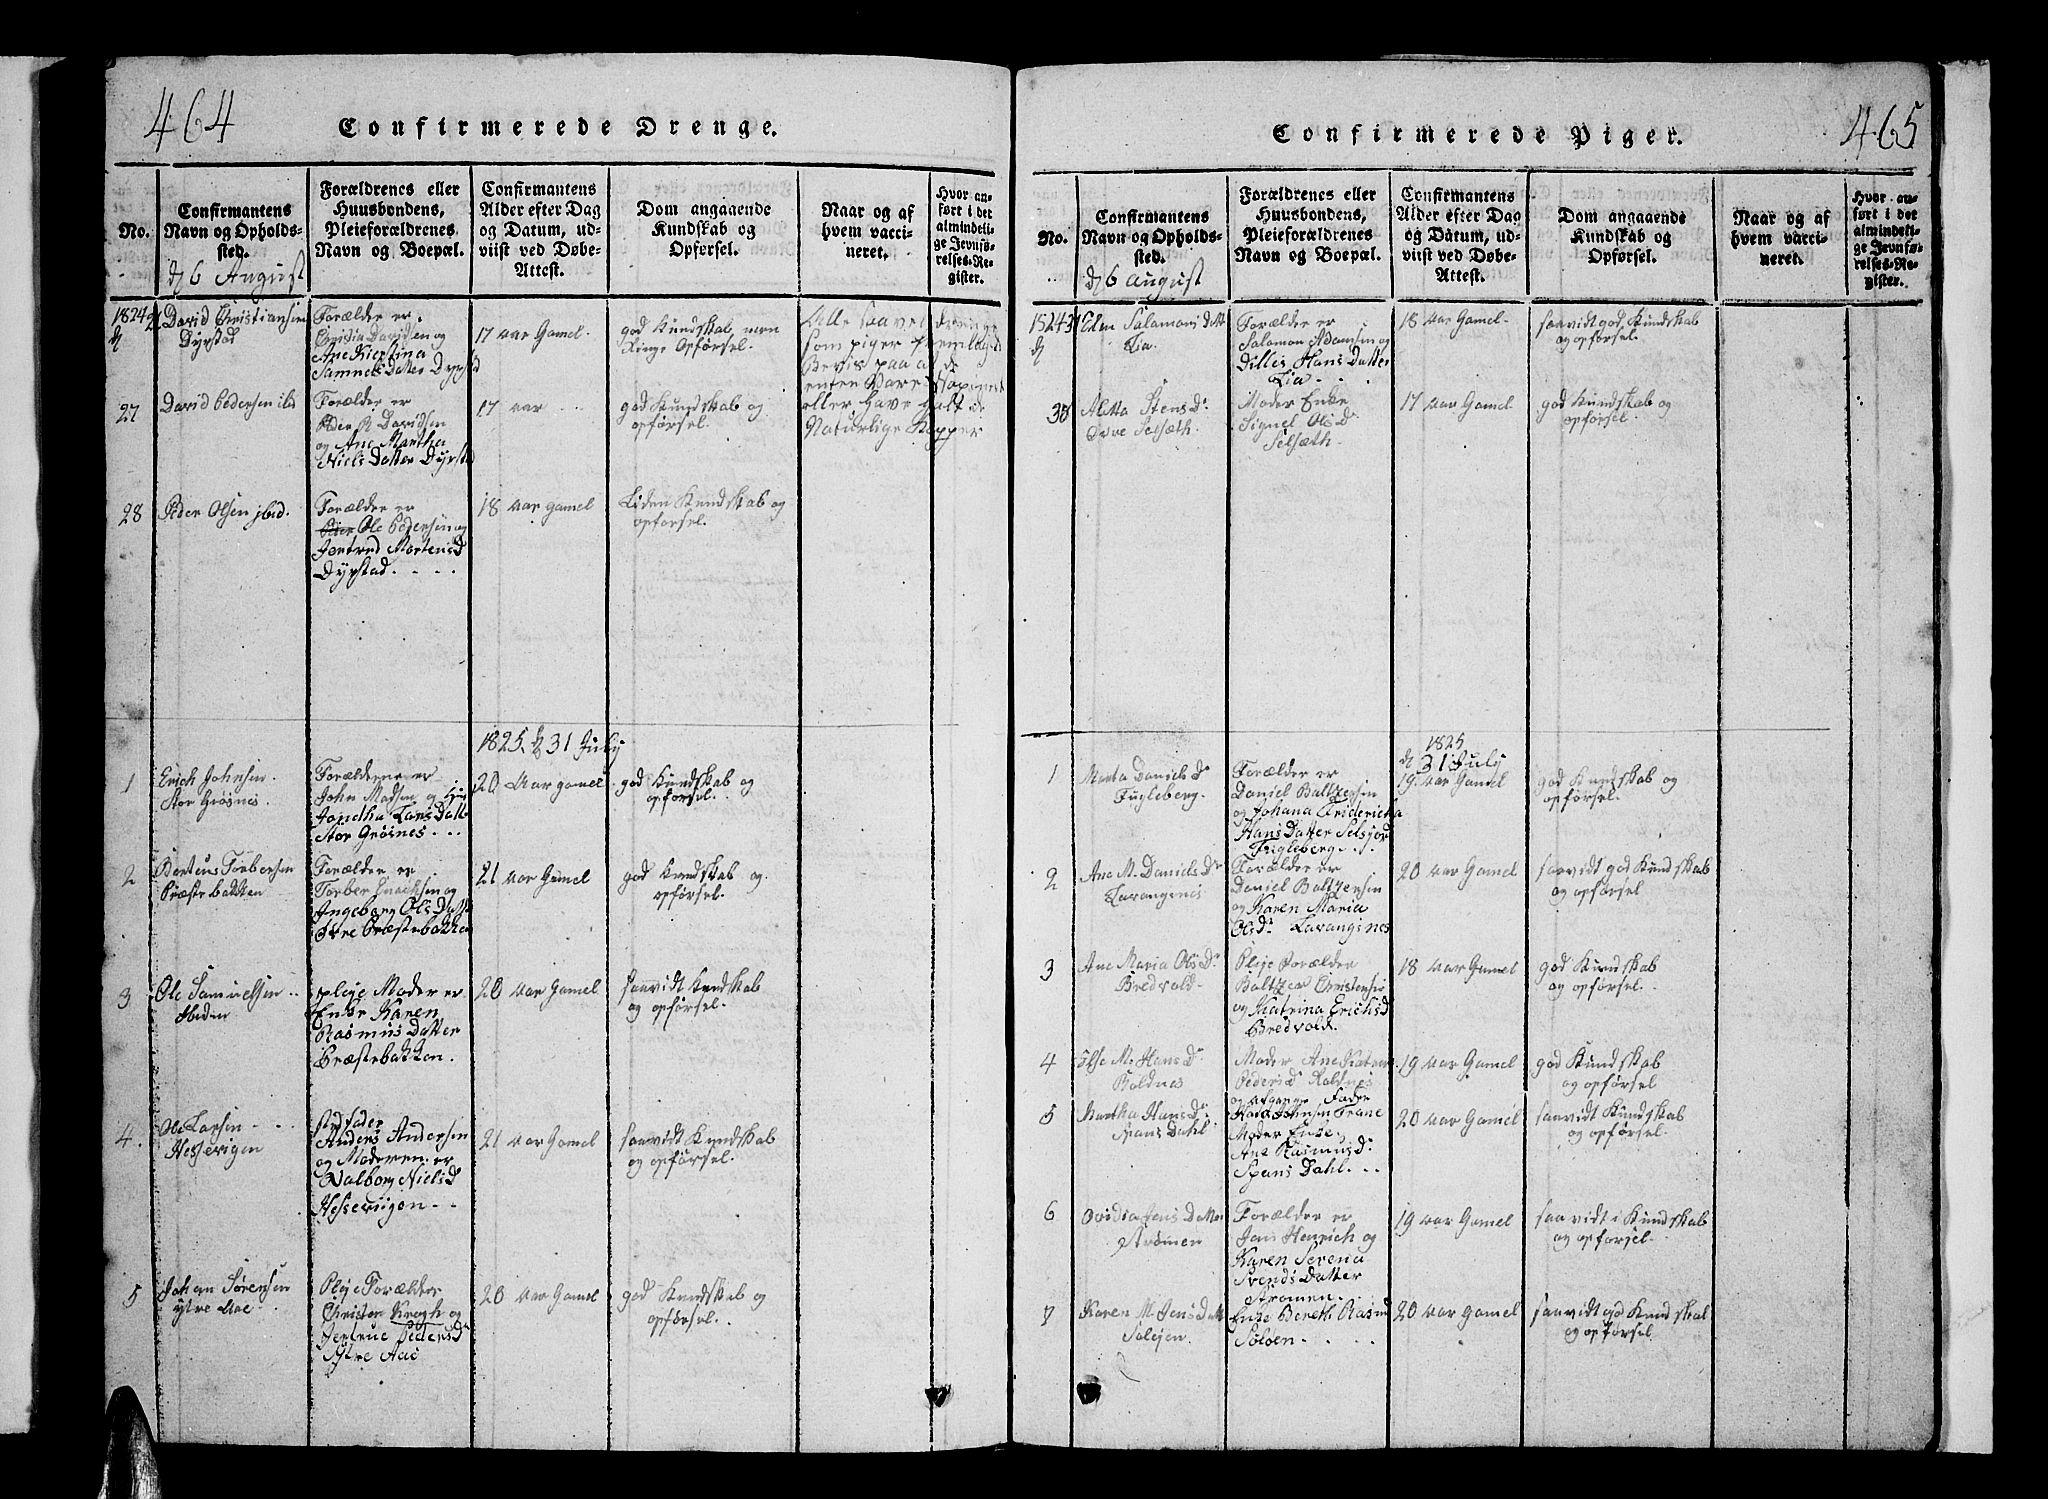 464
Confirmerede Drenge.
No.
Confirmantens
Navn og Opholds-
sted.
Forældrenes eller
Huusbondens,
Pleieforældrenes
Navn og Boepæl.
Confirmantens
Alder efter Dag
og Datum, ud-
viist ved Døbe-
Attest.
Dom angaaende
Kundskab og
Opførsel.
Naar og af
hvem vacci-
neret.
Hvor an-
ført i det
almindeli-
ge Jevnfø-
relses-Re-
gister.
d 6 August
1824
David Christiansen
Dyrstad
Forælder er
Davidsen og
Ane Kierstina
Samuels Datter Dyrstad
17 aar Gamel.
god Kundskab, men
Ringe Opførsel.
Alle saavel drenge
som piger fremlagde
Bevis paa at de
enten Vare
eller have havt de
Naturlige Kopper
27
David Pedersen
Forælder er
Peder R Davidsen
og Ane Martha
Niels Datter Dyrstad
17 aar
god Kundskab og
opførsel.
28
Peder Olsen jbid.
Forælder er
Ole Pedersen og
Jertrud Mortensd
Dyrstad. . . .
18 aar gamel
Liden Kundskab og
opførsel.
1825. d 31 July
1
Erich Johnsen.
Stor Grøsnes.
Forældrene er
John Madsen og
Lars Datt
Stor Grøsnes . . .
20 Aar gamel.
god Kundskab og
opførsel.
2
Berteus Torbersen
Præstebakken
Forælder er
Torber Enochsen og
Ingeborg Ols Datt
Præstebakken
21 aar Gamel
god Kundskab og
opførsel.
3
Ole Samuelsen
pleje Moder er
Enke Karen
Rasmus Datter
Præstebakken.
20 aar Gamel
saavidt Kundskab
og opførsel.
4.
Ole Larsen
Hessevigen
stedfader
Anders Andersen
og Moderen er
Valborg Nielsd
Hessevigen . .
21 aar Gamel
saavidt Kundskab
og opførsel.
5
Johan Sørensen
ytre Aae
Pleje Forælder
Christen Krogh og
Jertrue Pedersd
Ytre Aae
20 aar Gamel
god Kundskab og
opførsel.
465
Confirmerede Piger.
No.
Confirmantens
Navn og Opholds-
sted.
Forældrenes eller
Huusbondens,
Pleieforældrenes
Navn og Boepæl.
Confirmantens
Alder efter Dag
og Datum, ud-
viist ved Døbe-
Attest.
Dom angaaende
Kundskab og
Opførsel.
Naar og af
hvem vacci-
neret.
Hvor an-
ført i det
almindeli-
ge Jevnfø-
relses-Re-
gister.
d 6 august
1824
Elen Salamons datt
Lia.
Forælder er
Salamon Adamsen og
Hans Datter
Lia . . .
18 aar Gamel.
saavidt god Kundskab
og opførsel.
38
Aletta Stens D.
Selsæth.
Moder Enke
Signel Ols D
Selsæth.
17 aar Gamel
god Kundskab og
opførsel
1825
d 31 July
1
Marta Daniels D
Fugleberg.
Forælder er
Daniel Baltzersen
og Johana Friderica
Hans Datter
Fugleberg . . .
19. aar Gamel
god Kundskab og
opførsel.
2
Ane M. Daniels D
Lavangsnes
Forælder er
Daniel Baltzersen
og Karen Maria
Ols D. Lavangsnes
20 aar Gamel
saavidt god Kundskab
og opførsel
3
Ane Maria Ols D.
Bredvold.
Pleje Forælder
Baltzer Christensen
og Katrina Erichsd
Bredvold.
18 aar Gamel
god Kundskab
og opførsel.
4
Else M. Hans D.
Roldnes
Moder Ane
Peders D Roldnes
19 aar Gamel
god Kundskab
og opførsel
5
Martha Hans D.
Spans Dahl.
og afgange Fader
Johnsen Trane
Moder Enke
Ane Rasmus D.
Spans Dahl. . .
20 aar Gamel
saavidt Kundskab
og opførsel.
6
Ovidia Jens Datter
Strømen
Forælder er
Jens Henrich og
Karen Serena
Svends Datter
Strømen. . .
19 aar Gamel
saavidt i Kundskab
og opførsel.
7
Karen M. Jens Datt
Soløjen
Enke Bereth Rasmus
Soløen . . . .
20 aar Gamel
saavidt god Kundskab
og opførsel